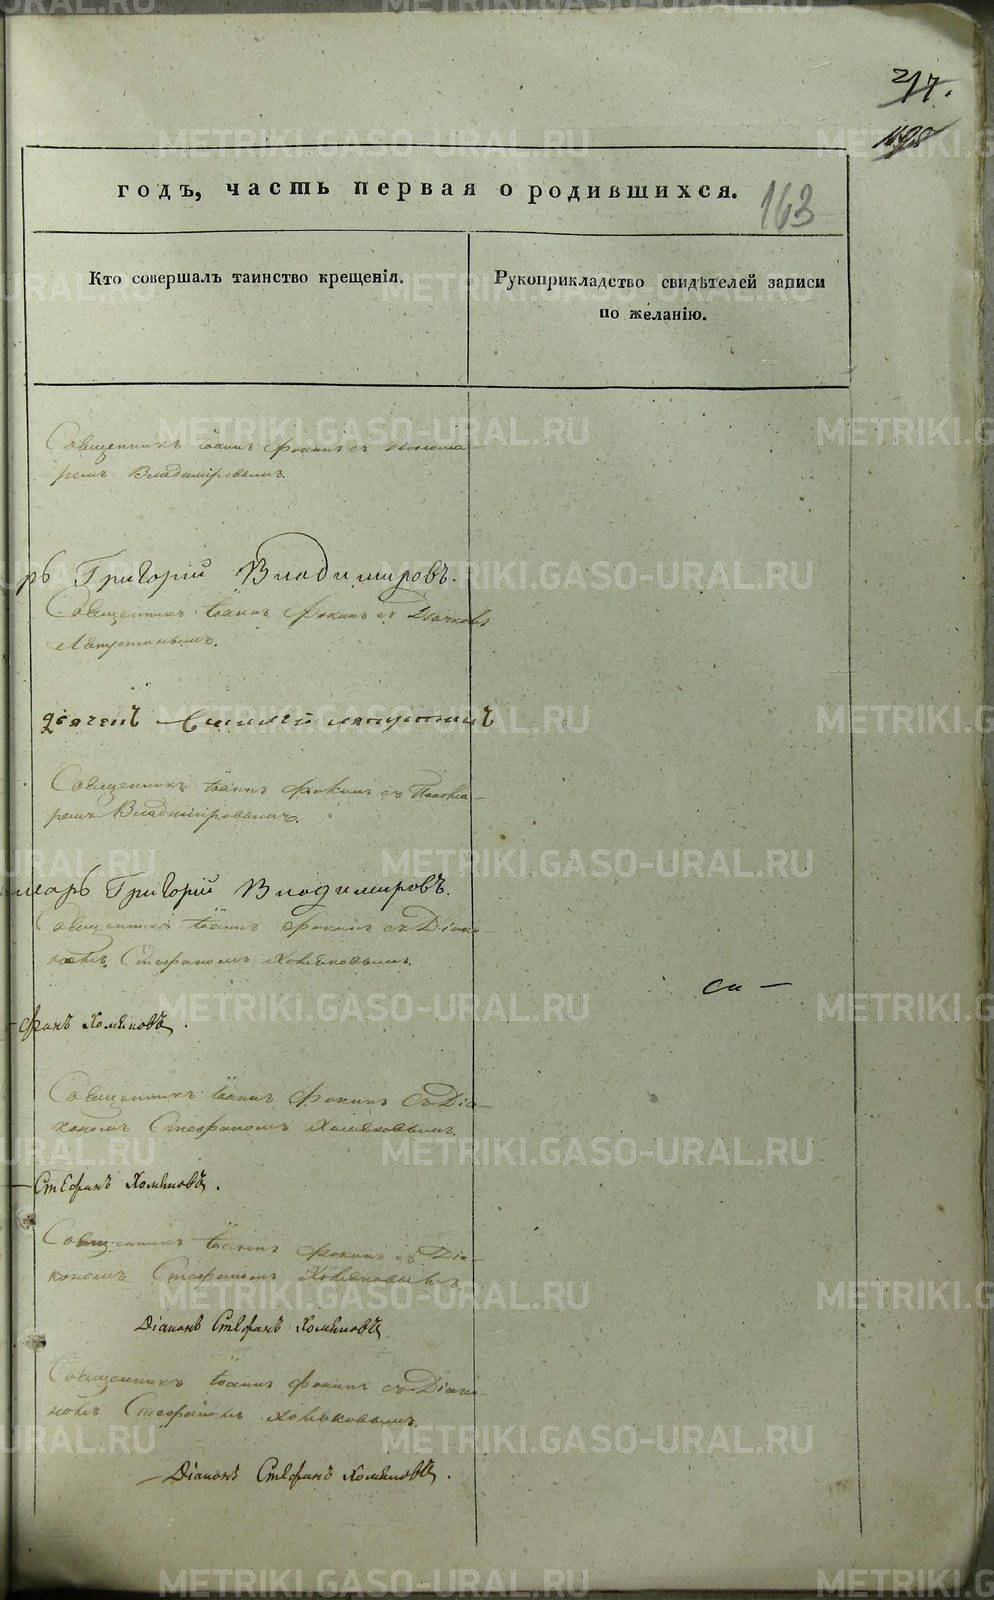 217.
163
годъ, часть первая о родившихся.
Кто совершалъ таинство крещенія.
Рукоприкладство свидѣтелей записи
по желанію.
Священникъ Іоаннъ Фокинъ съ Понома-
ремъ Владиміровымъ.
рь Григорій Владимировъ.
Священникъ Іоаннъ Фокинъ съ Дьячкомъ
Лапустинымъ.
дьячекъ
Священникъ Іоаннъ Фокинъ съ Понома-
ремъ Владиміровымъ.
марь Григорій Владимировъ.
Священникъ Іоаннъ Фокинъ съ Діако-
номъ Стефаномъ Хомяковымъ.
-фанъ Хомяковъ.
Священникъ Іоаннъ Фокинъ съ Діа-
кономъ Стефаномъ Хомяковымъ.
Стефанъ Хомяковъ.
Священникъ Іоаннъ Фокинъ съ Діа-
кономъ Стефаномъ Хомяковымъ
Діаконъ Стефанъ Хомяковъ
Священникъ Іоаннъ Фокинъ съ Діако-
номъ Стефаномъ Хомяковымъ.
Діаконъ Стефанъ Хомяковъ.
METRIKI.GASO-URAL.RU